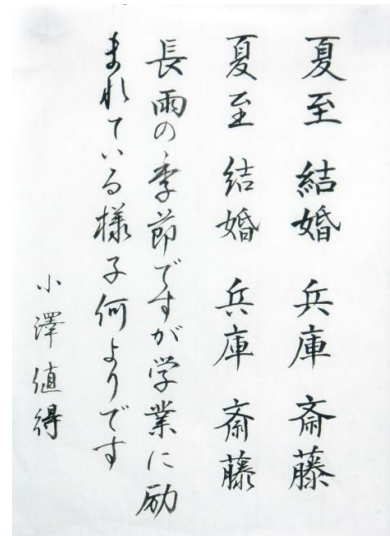 夏至 結婚 兵庫 斎藤
夏至 結婚 兵庫 斎藤
長雨の季節ですが学業に励
まれている様子何よりです
小澤値得